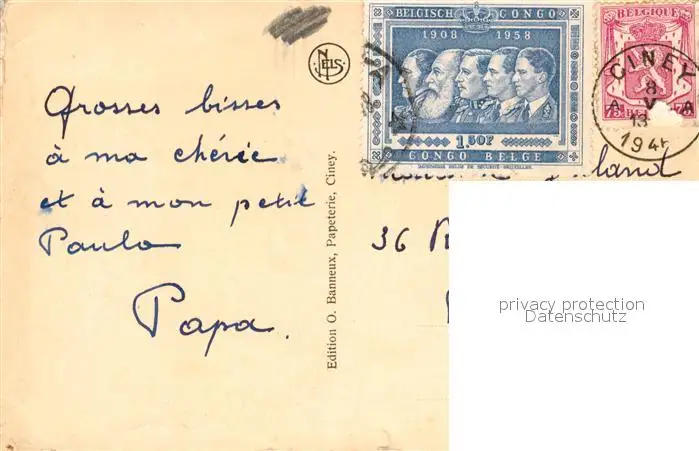 Grosses bisses
à ma chérie
et à mon petit
Paulo
Papa.
NELS
Edition O. Banneux, Papeterie, Ciney.
BELGISCH CONGO
1908 1958
1,50F
CONGO BELGE
BELGIQUE
CINEY
8
A V
13
194
36
privacy protection
Datenschutz